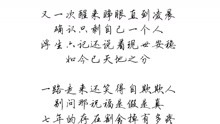 又一次醒来睁眼直到凌晨
确认只剩自己一个人
浮生六记还说着现世安稳
如今已天地之分
一路走来还笑得自欺欺人
别问那祝福是假是真
七年的存在割舍掉有多疼